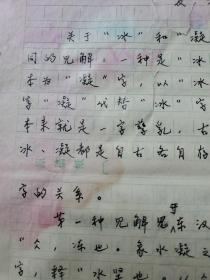 关于“冰”和“凝
同的见解。一种是“冰
本为“凝”字，以“冰
字“凝”代替“冰”字
本来就是一字孳乳，古
冰、凝都是自古各自存
字的关系。
第一种见解见东汉
“仌，冻也。象水凝之
字，释“水坚也。